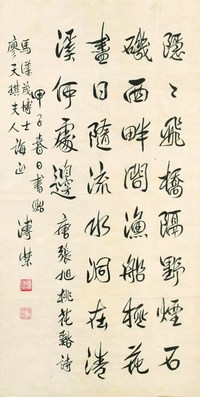 隱〻飛橋隔野煙石
磯西畔問漁船桃花
盡日隨流水洞在清
溪何處邊 唐張旭桃花谿詩
甲子春日書貽
馬漢茂博士
廖天琪夫人誨正
溥傑